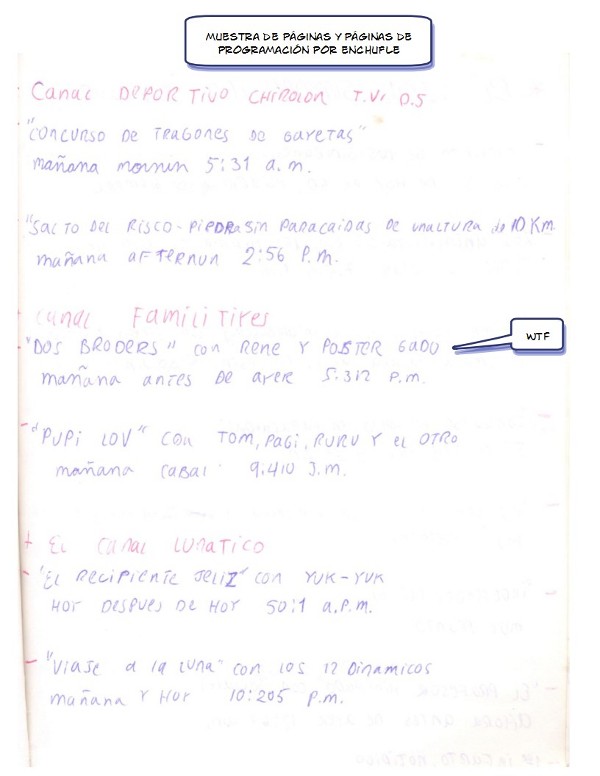 MUESTRA DE PÁGINAS Y PÁGINAS DE
PROGRAMACIÓN POR ENCHUFLE
Canal DEPORTIVO CHIROLON T.Vi D.5
"CONCURSO DE TRAGONES DE GAYETAS"
mañana mornin 5:31 a.m.
"SALTO DEL RISCO-PIEDRA SIN PARACAIDAS DE UNALTURA de 10 Km.
mañana AFTERNUN 2:56 P.m.
Canal FAMILITIRES
"DOS BRODERS" con RENE Y POSTER GADO
WTF
mañana antes DE AYER 5:312 P.m.
"PUPI LOV" CON TOM, PAGI, RURU Y el OTRO
mañana CABAL 9:410 J.m.
EL CANAL LUNATICO
"EL RECIPIENTE JELIZ" con YUK-YUK
HOY DESPUES DE HOY 50:1 a.P.m.
"VIAJE a la LUNA" CON LOS 12 DINAMICOS
mañana Y HOY 10:205 P.m.